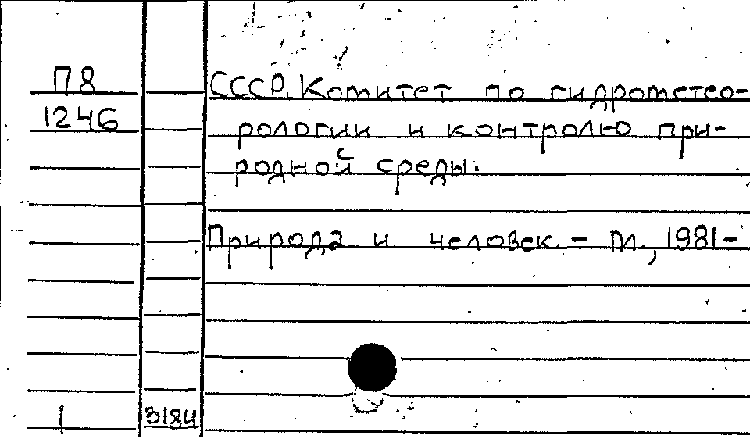 П8
1246
СССР. Комитет по гидрометео-
рологии и контролю при-
родной среды.
Природа и человек. - М., 1981-
1 3184